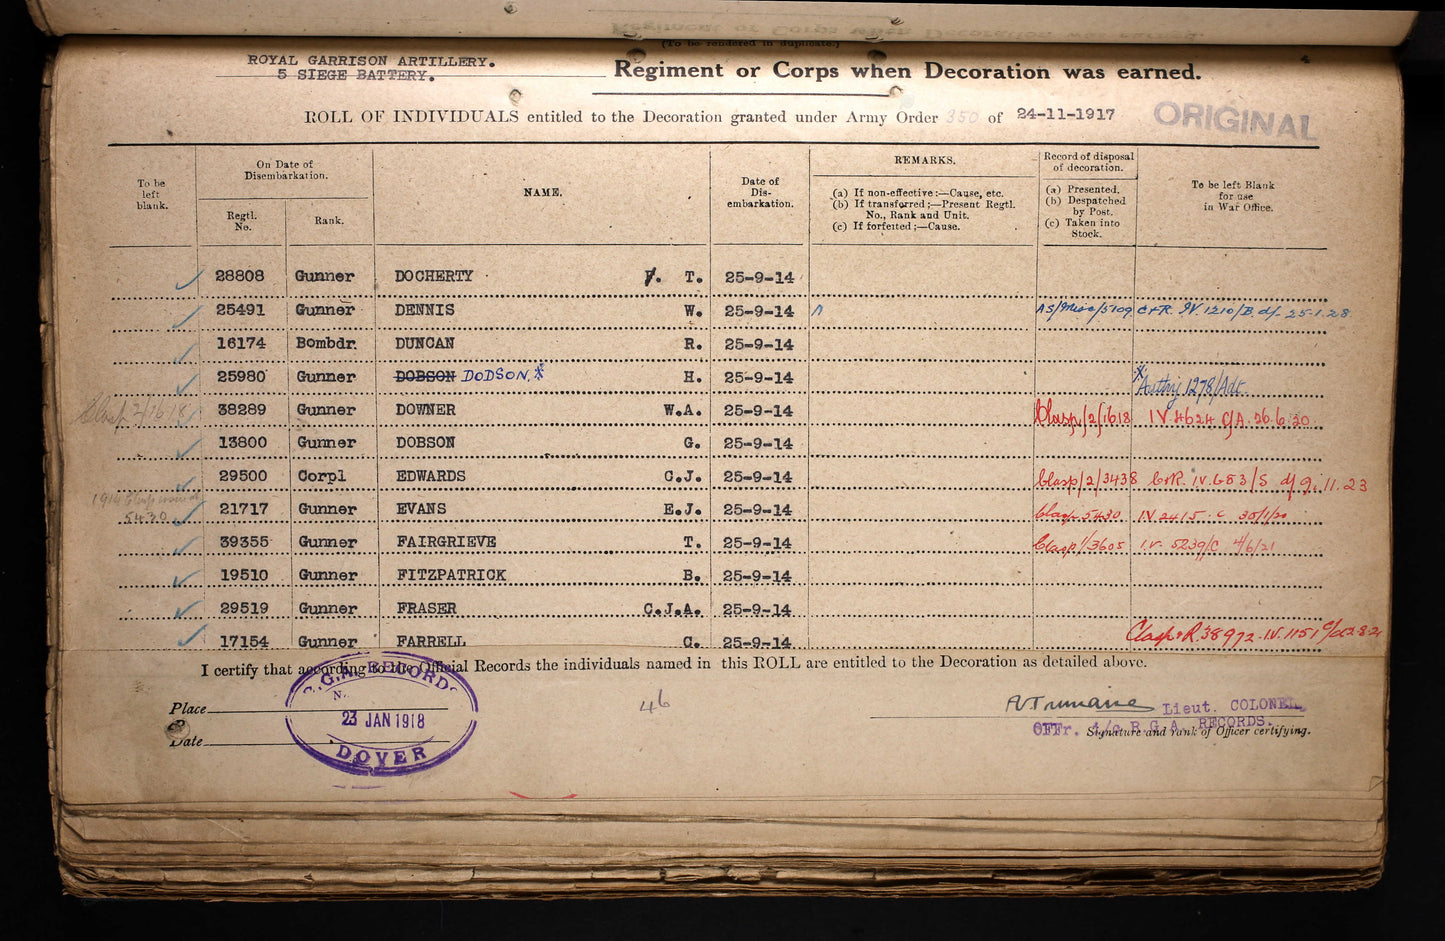 (To be rendered in duplicate.)
ROYAL GARRISON ARTILLERY.
5 SIEGE BATTERY.
Regiment or Corps when Decoration was earned.
ROLL OF INDIVIDUALS entitled to the Decoration granted under Army Order 350 of 24-11-1917
ORIGINAL
To be left blank.
On Date of Disembarkation.
Regtl. No.
Rank.
NAME.
Date of Dis-embarkation.
REMARKS.
(a) If non-effective:—Cause, etc.
(b) If transferred;—Present Regtl. No., Rank and Unit.
(c) If forfeited;—Cause.
Record of disposal of decoration.
(a) Presented.
(b) Despatched by Post.
(c) Taken into Stock.
To be left Blank for use in War Office.
28808 Gunner DOCHERTY F. T. 25-9-14
25491 Gunner DENNIS W. 25-9-14 AS/Misc/5109 C+R. IV 1210/B. d/- 25-1-28
16174 Bombdr. DUNCAN R. 25-9-14
25980 Gunner DOBSON DODSON.* H. 25-9-14 * Authy 1278/Adt.
Clasp 2/1618 38289 Gunner DOWNER W.A. 25-9-14 Clasp/2/1618 IV 4624 C/A. 26.6.20
13800 Gunner DOBSON G. 25-9-14
29500 Corpl EDWARDS C.J. 25-9-14 Clasp/2/3438 C+R. IV. 653/S d/ 9.11.23
1914 Clasp issued 5430 21717 Gunner EVANS E.J. 25-9-14 Clasp 5430 IV 2415.C 30/1/20
39355 Gunner FAIRGRIEVE T. 25-9-14 Clasp 1/3605 IV. 5239/C 4/6/21
19510 Gunner FITZPATRICK B. 25-9-14
29519 Gunner FRASER C.J.A. 25-9-14
17154 Gunner FARRELL C. 25-9-14 Clasp+R. 38972. IV. 1151
I certify that according to the Official Records the individuals named in this ROLL are entitled to the Decoration as detailed above.
Place
Date
R.G.A. RECORDS
23 JAN 1918
DOVER
46
Lieut. COLONEL,
OFFr. i/c R.G.A. RECORDS.
Signature and Rank of Officer certifying.